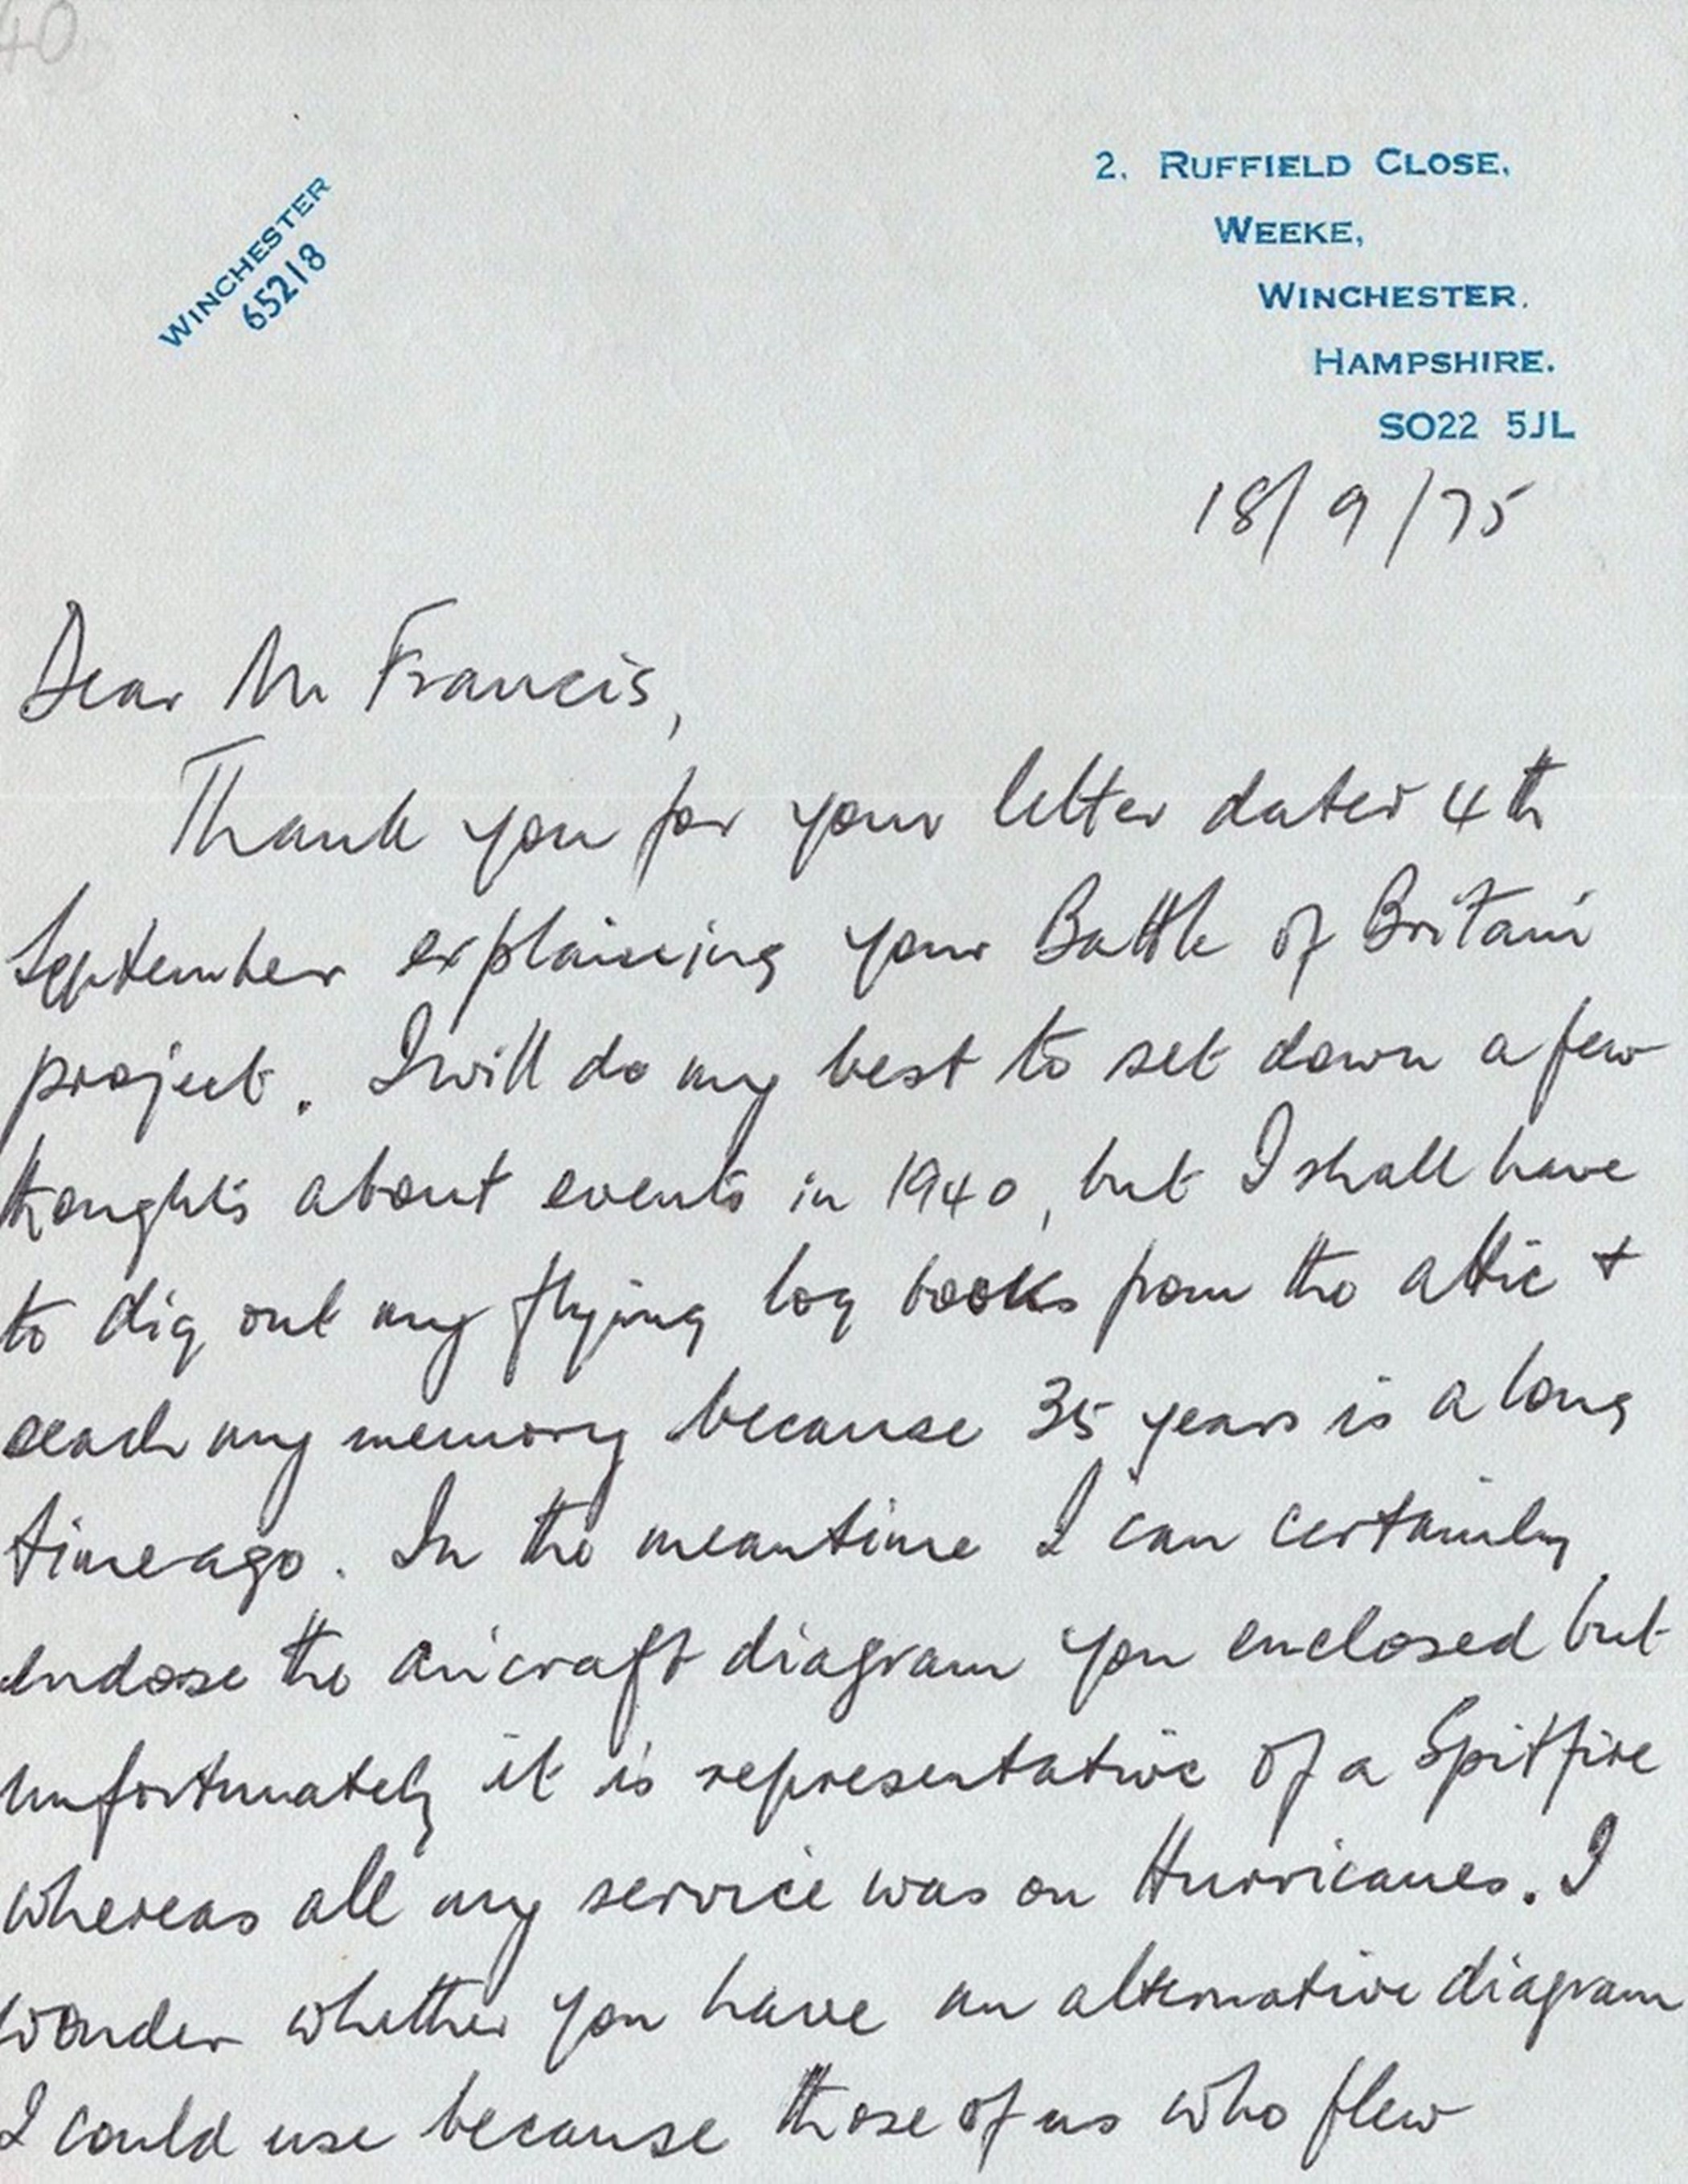 40
WINCHESTER
65218
2. RUFFIELD CLOSE,
WEEKE,
WINCHESTER.
HAMPSHIRE.
SO22 5JL
18/9/75
Dear Mr Francis,
Thank you for your letter dated 4th
September explaining your Battle of Britain
project. I will do my best to set down a few
thoughts about events in 1940, but I shall have
to dig out my flying log books from the attic +
search my memory because 35 years is a long
time ago. In the meantime I can certainly
endorse the aircraft diagram you enclosed but
unfortunately it is representative of a Spitfire
whereas all my service was on Hurricanes. I
wonder whether you have an alternative diagram
I could use because those of us who flew